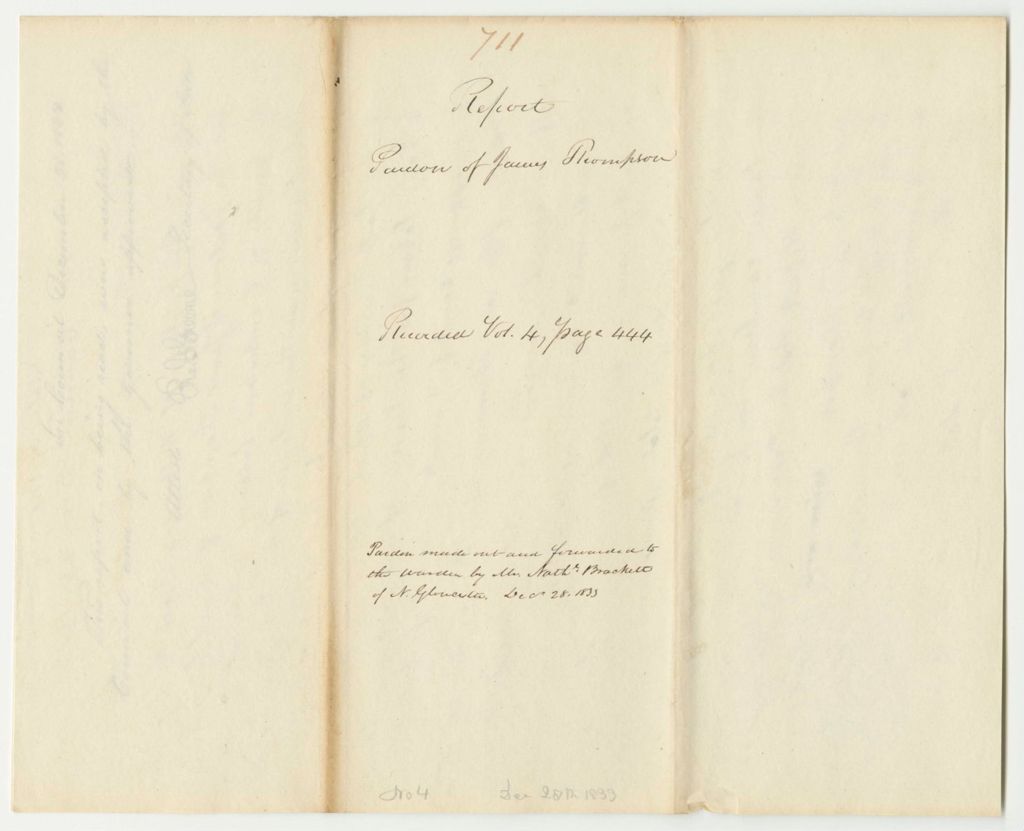 711
Report
Pardon of James Thompson
Recorded Vol. 4, Page 444
Pardon made out and forwarded to
the warden by Mr. Nathl. Brackett
of N. Gloucester. Decr 28. 1833
No 4 Dec 28th 1833
In Council